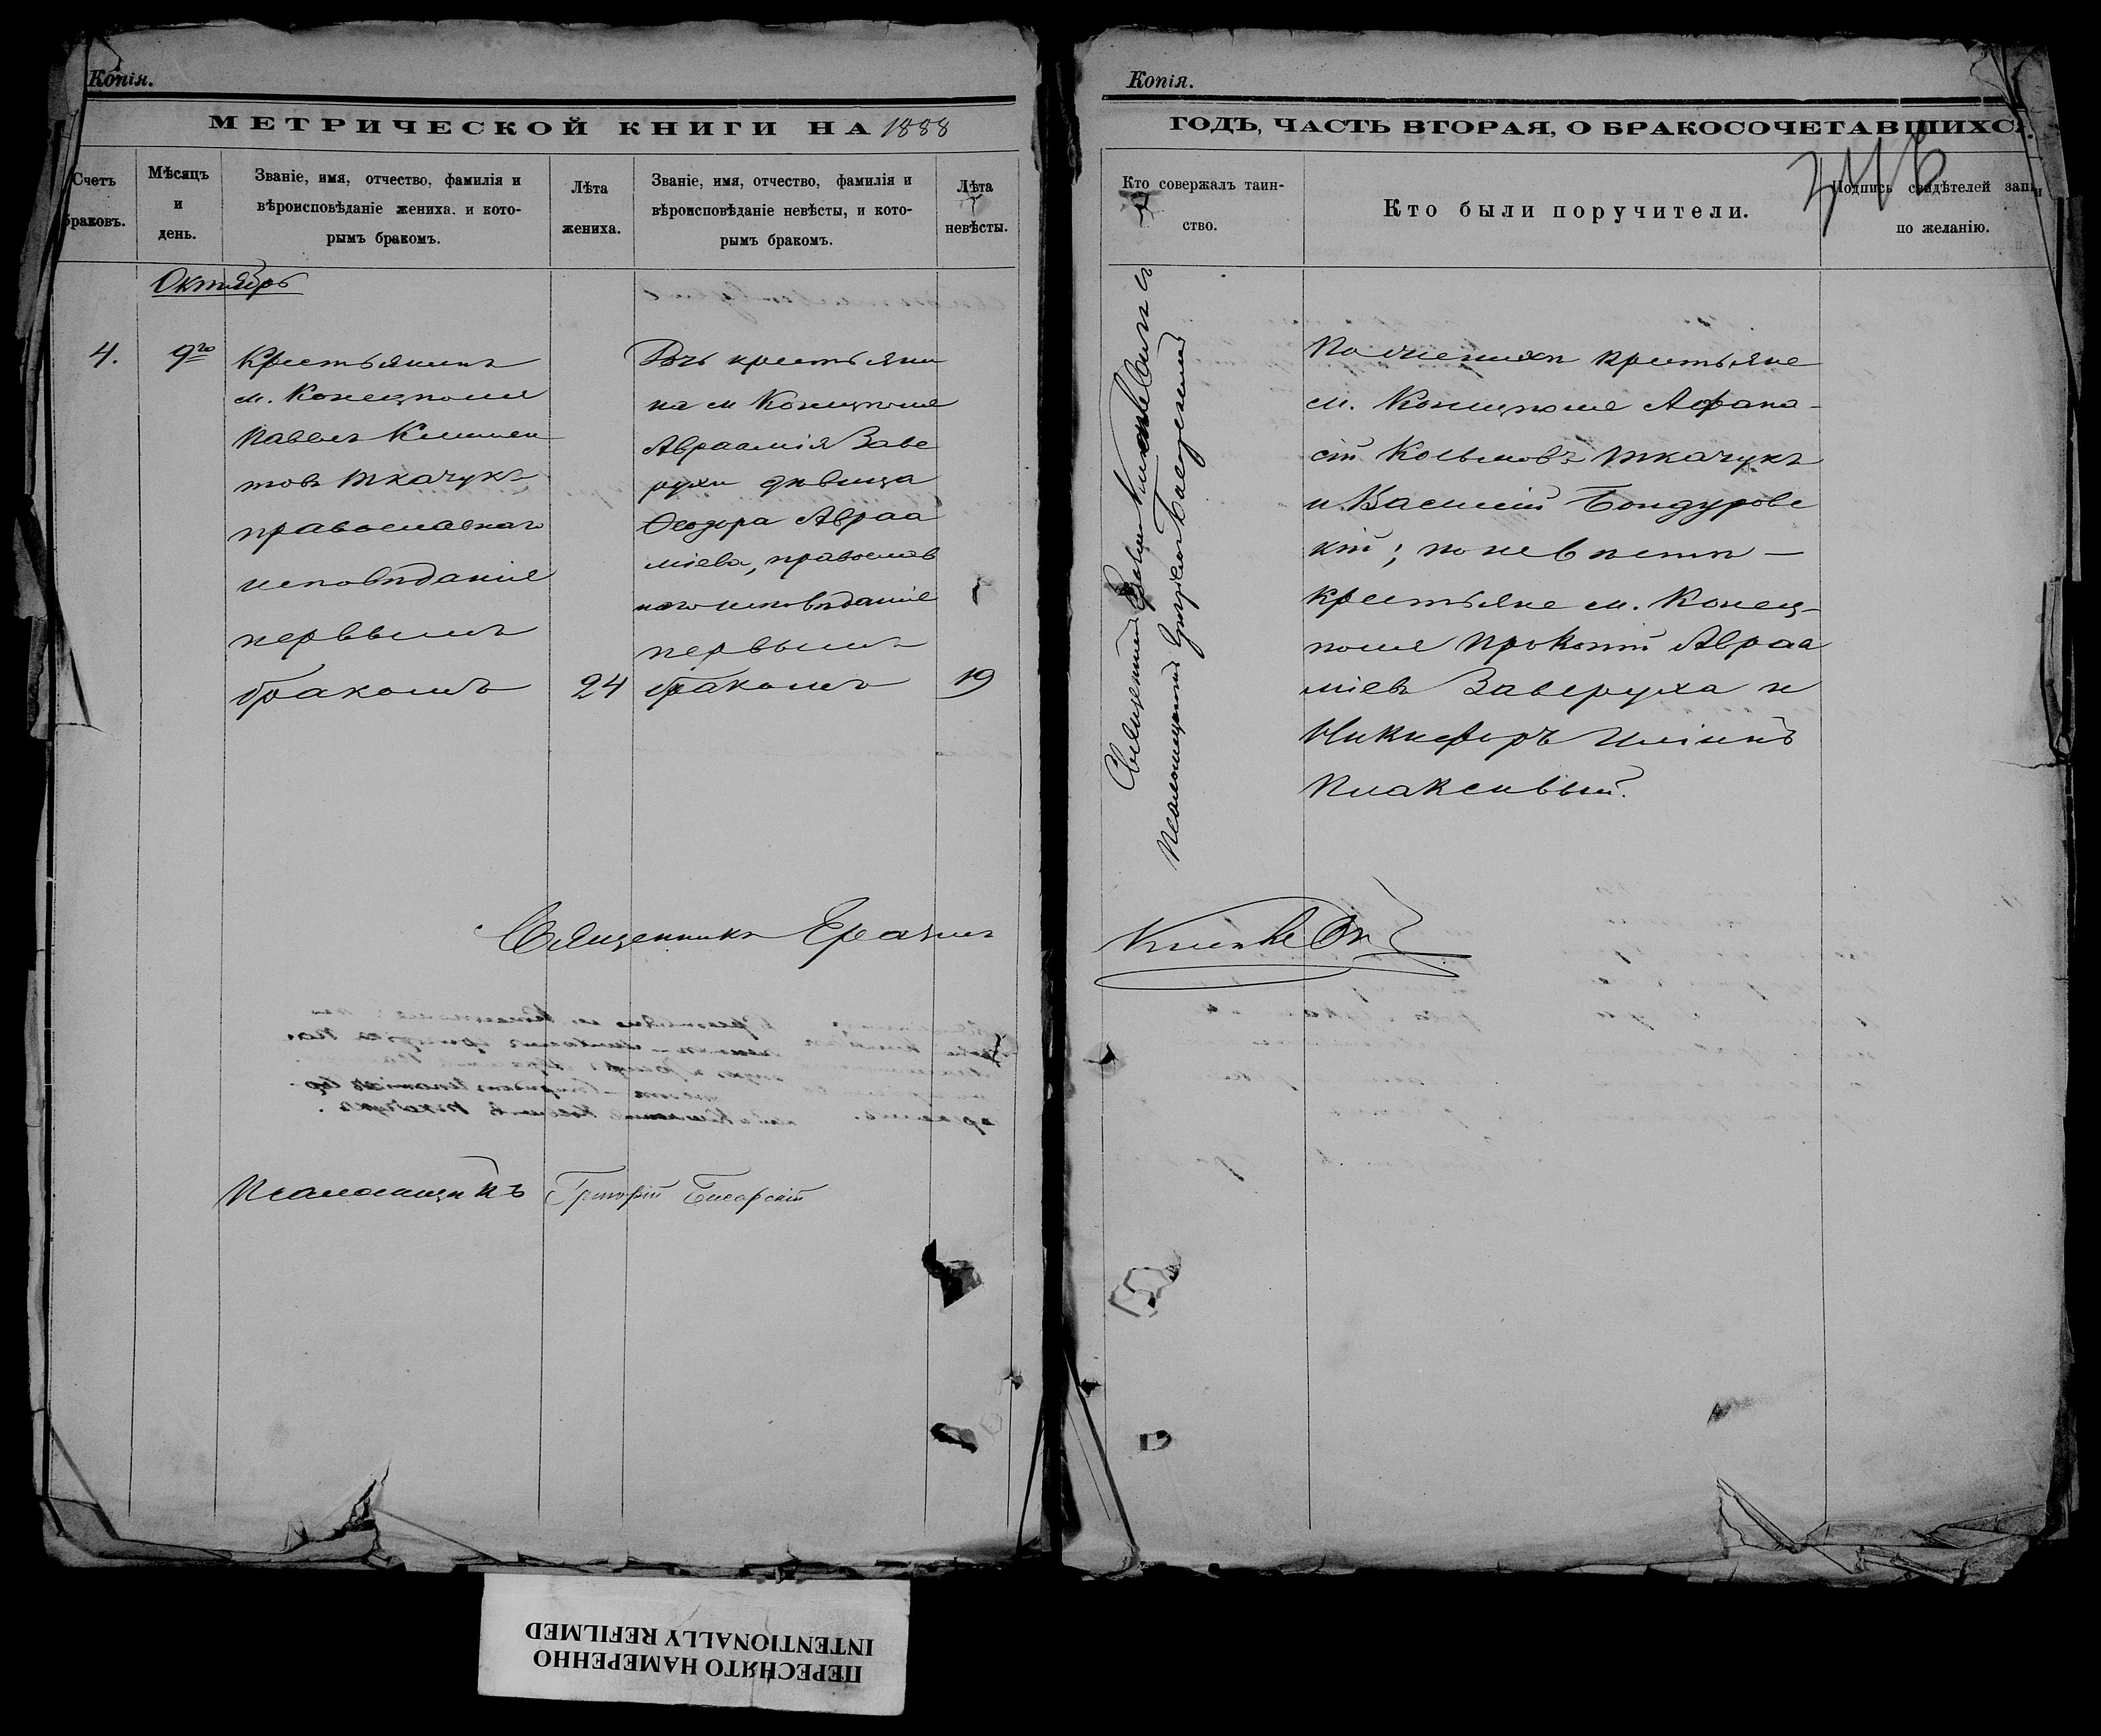 Копія.
МЕТРИЧЕСКОЙ КНИГИ НА 1888
Счетъ
браковъ.
Мѣсяцъ
и
день.
Званіе, имя, отчество, фамилія и
вѣроисповѣданіе жениха. и кото-
рымъ бракомъ.
Лѣта
жениха.
Званіе, имя, отчество, фамилія и
вѣроисповѣданіе невѣсты, и кото-
рымъ бракомъ.
Лѣта
невѣсты.
Октябрь
4.
9го
Крестьянинъ
м. Конецполя
Павелъ Климен
товъ Ткачукъ
православнаго
исповѣданія
первымъ
бракомъ
24
Дочь крестьяни
на м Конецполя
Авраамія Заве
рухи дѣвица
Ѳеодора Авраа
міева, православ
наго исповѣданія
первымъ
бракомъ
19
Священникъ
Псаломщикъ Григорій
Копія.
ГОДЪ, ЧАСТЬ ВТОРАЯ, О БРАКОСОЧЕТАВШИХСЯ.
Кто совержалъ таин-
ство.
Кто были поручители.
Подпись свидѣтелей запи
по желанію.
Священникъ
Псаломщикъ Григорій
По женихѣ крестьяне
м. Конецполя Афана-
сій Космовъ Ткачукъ
и Василій Бондуровс
кій; по невѣстѣ —
крестьяне м. Конец-
поля Прокопій Авраа
міевъ Заверуха и
Никифоръ
Плаксивый.
ПЕРЕСНЯТО НАМЕРЕННО
INTENTIONALLY REFILMED